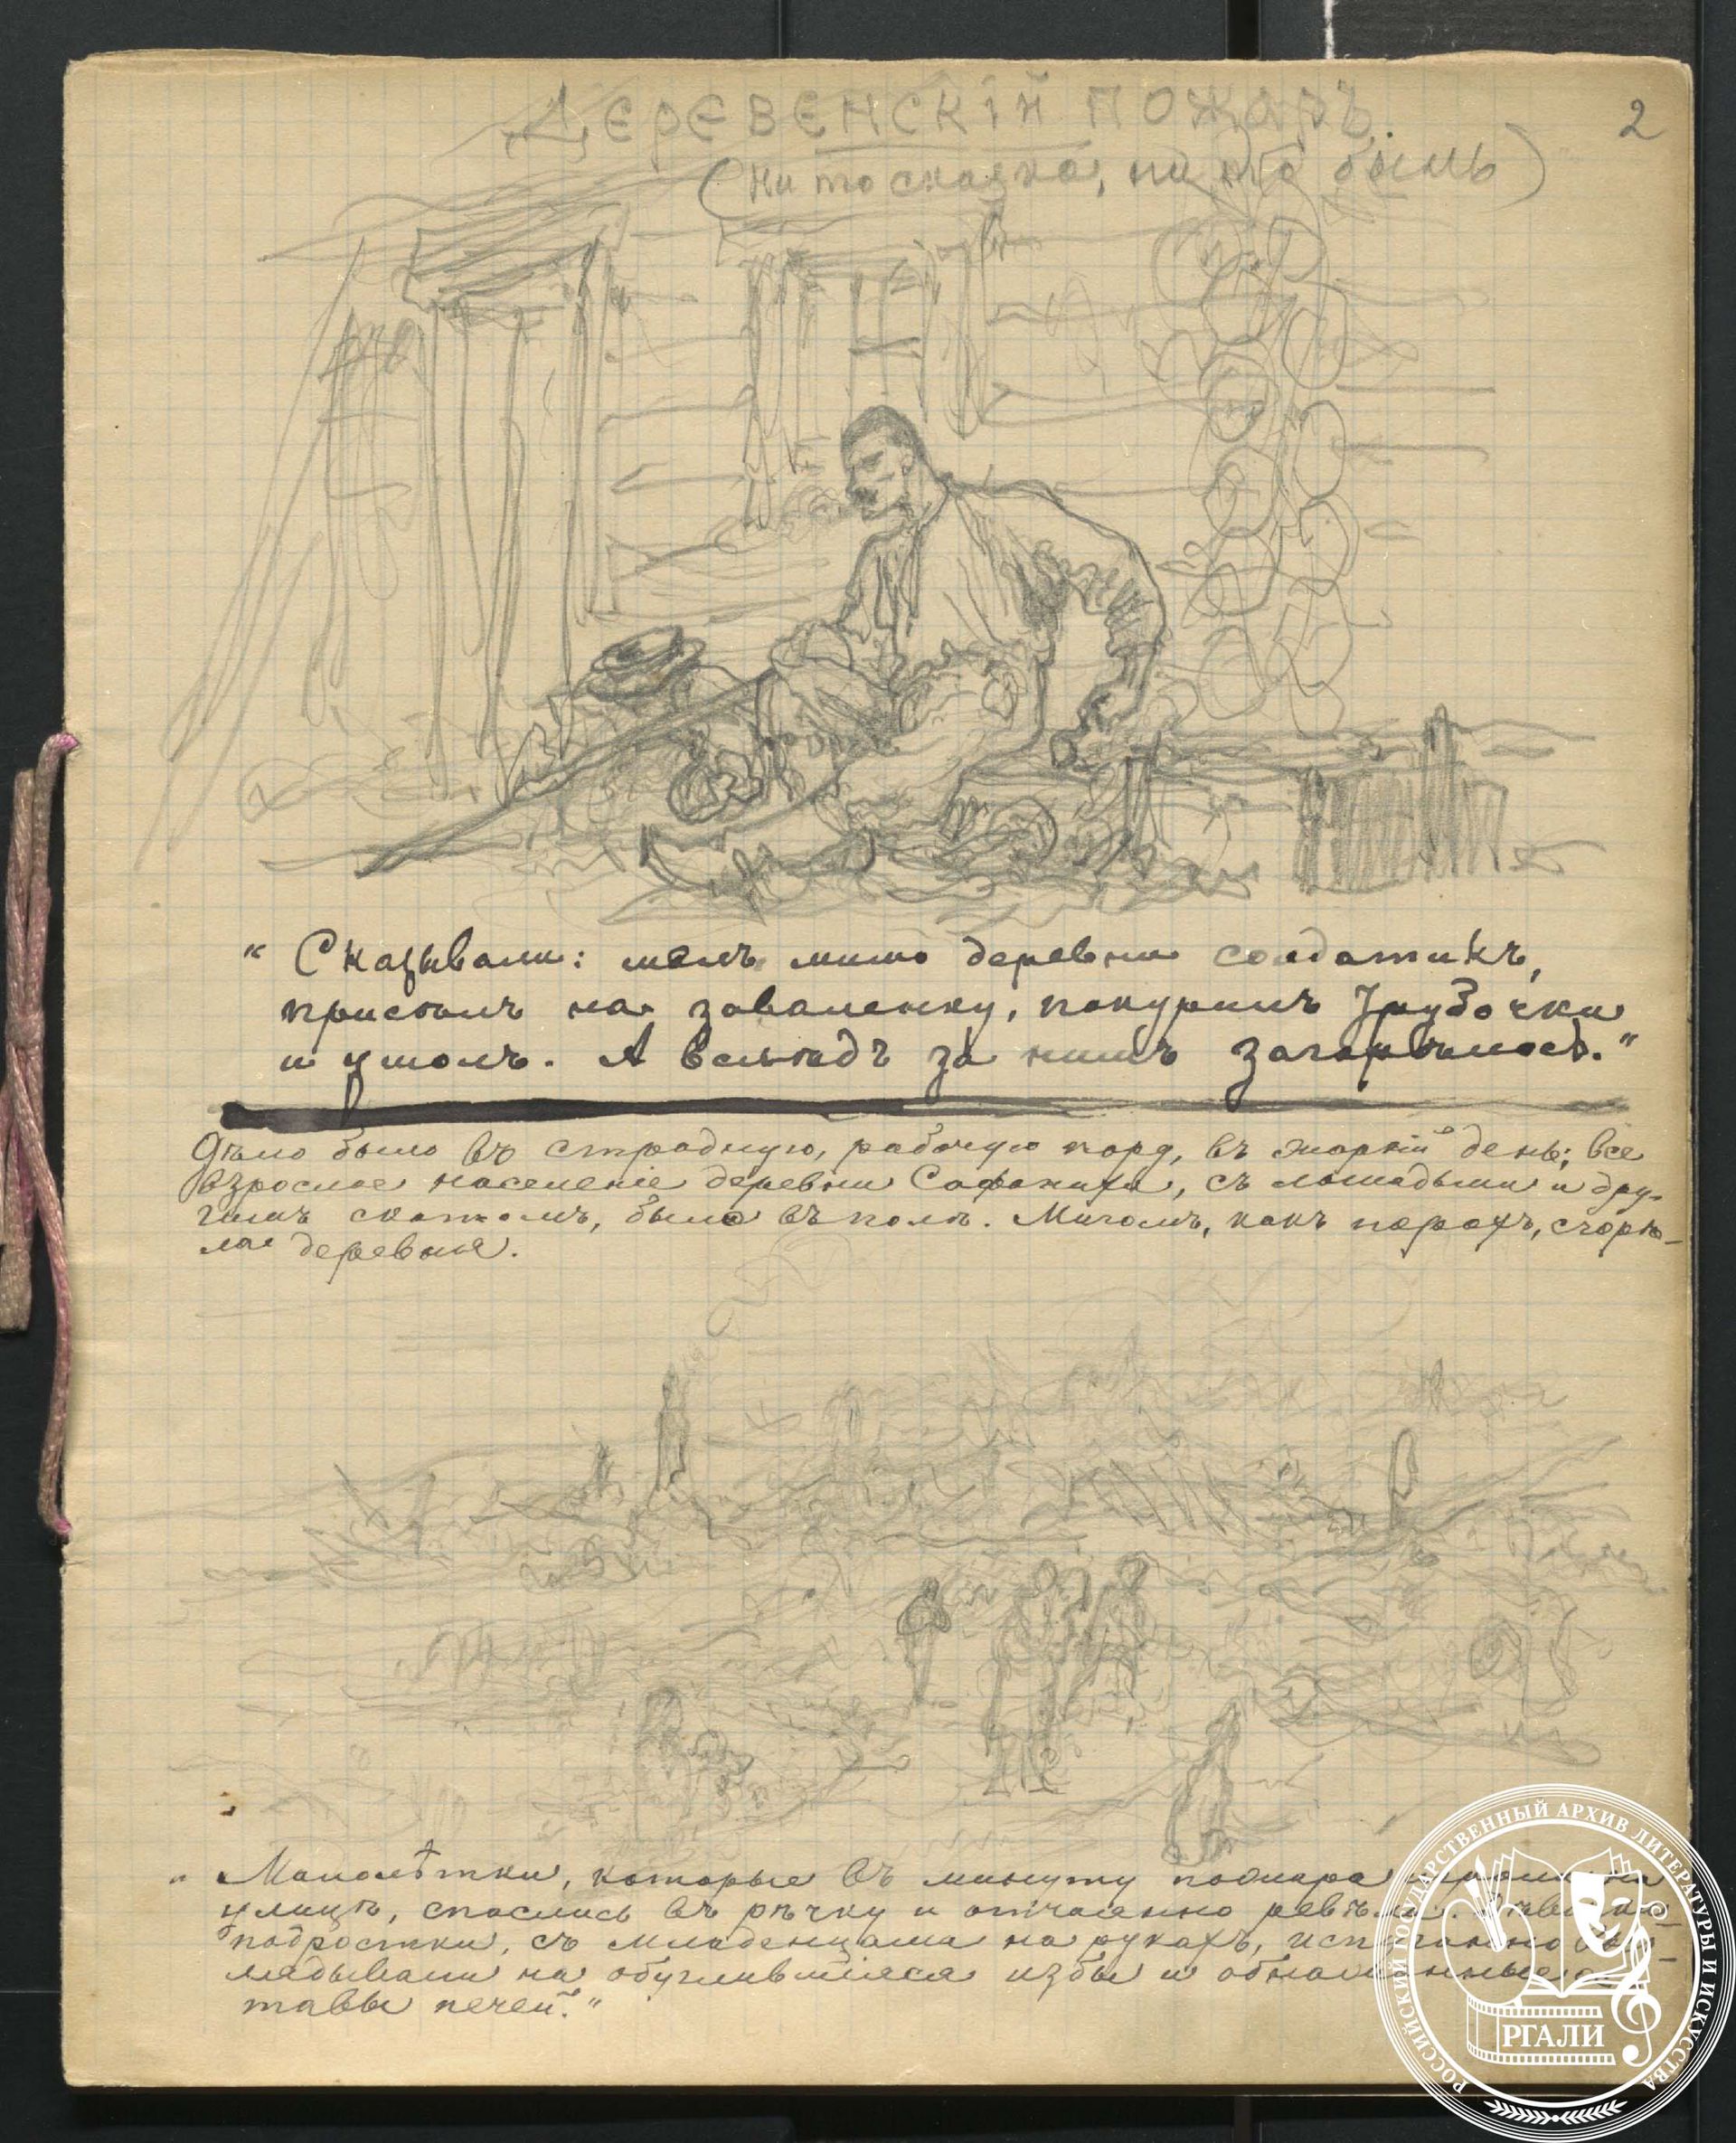 ДЕРЕВЕНСКІЙ ПОЖАРЪ.
2
(ни то сказка, ни то быль)
"Сказывали: шелъ мимо деревни солдатикъ,
присѣлъ на заваленку, покурилъ трубочки
и ушолъ. А вслѣдъ за нимъ загорѣлось."
Дѣло было въ страдную, рабочую пору, въ жаркій день; все
взрослое населеніе деревни Софониха, съ лошадьми и дру-
гимъ скотомъ, было въ полѣ. Мигомъ, какъ порохъ, сгорѣ-
ла деревня.
"Малолѣтки, которые въ минуту пожара играли на
улицѣ, спаслись въ рѣчку и отчаянно ревѣли. Дѣвочки
подростки, съ младенцами на рукахъ, испуганно
глядывали на обуглившіяся избы и обнаженные
тавы печей."
РОССИЙСКИЙ ГОСУДАРСТВЕННЫЙ АРХИВ ЛИТЕРАТУРЫ И ИСКУССТВА
РГАЛИ